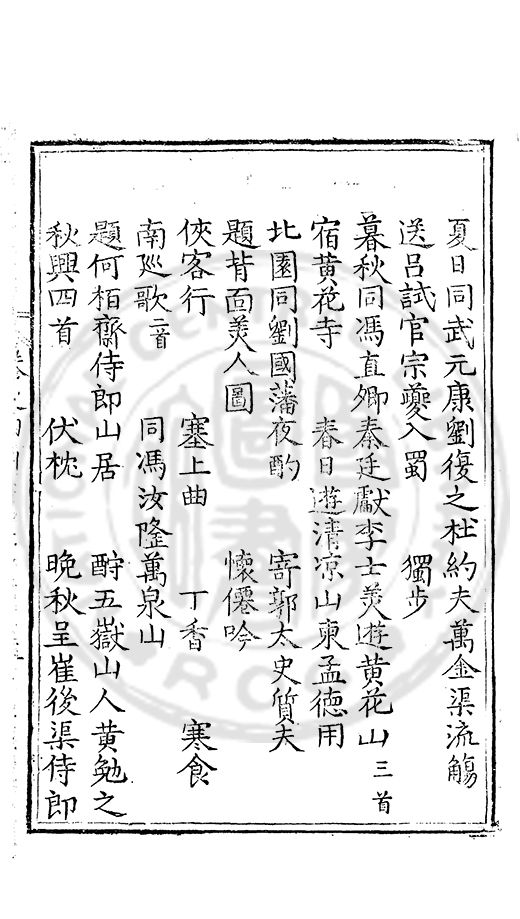 夏日同武元康劉復之杜約夫萬金渠流觴
送呂試官宗夔入蜀 獨步
暮秋同馮直卿秦廷獻李士美遊黄花山三首
宿黄花寺 春日遊清凉山柬孟德用
北園同劉國藩夜酌 寄郭太史質夫
題背面美人圖 懷僊吟
俠客行 塞上曲 丁香 寒食
南廵歌二首 同馮汝隆萬泉山
題何栢齋侍郎山居 酧五嶽山人黄勉之
秋興四首 伏枕 晚秋呈崔後渠侍郎